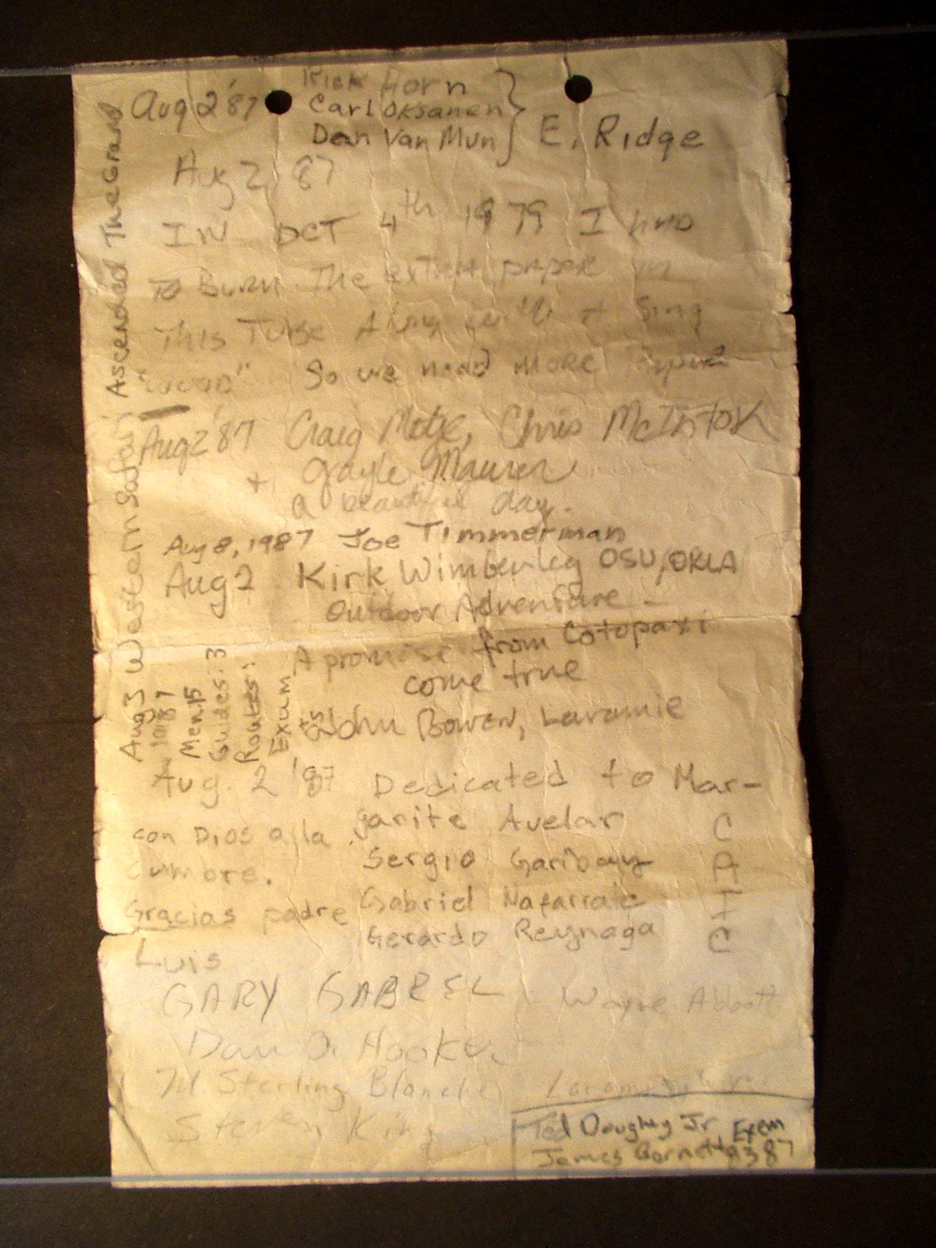 Aug 2 '87 Rick Horn
Carl Oksanen
Dean Van Mun
E. Ridge
Aug 2 87
IN OCT 4th 1979 I had
To Burn The extra paper in
This Tube Along with A
So we need More
Aug 2 '87 Craig Chris McIntosh
+ Gayle Maurer
a beautiful day.
Aug 8, 1987 Joe Timmerman
Aug 2 Kirk Wimberley OSU, OKLA
Outdoor Adventure -
A promise from Cotopaxi
come true
John Bowen, Laramie
Aug. 2 '87 Dedicated to Mar-
garite Avelar
Sergio Garibay
Gabriel
Gerardo Reynaga
con Dios a la
cumbre.
Gracias padre
Luis
GARY GABREL
Wayne Abbott
Dan O. Hooker
Sterling
Steven King
Ted Doughty Jr Exem
James 87
Aug 3 Western Safari Ascended The Grand
1987
Men: 15
Guides: 3
Routes:
Exum